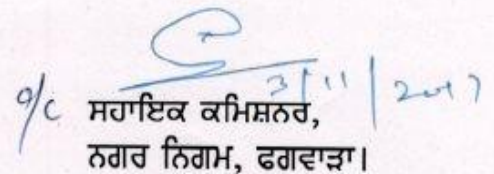 3/11/2017
o/c ਸਹਾਇਕ ਕਮਿਸ਼ਨਰ,
ਨਗਰ ਨਿਗਮ, ਫਗਵਾੜਾ।